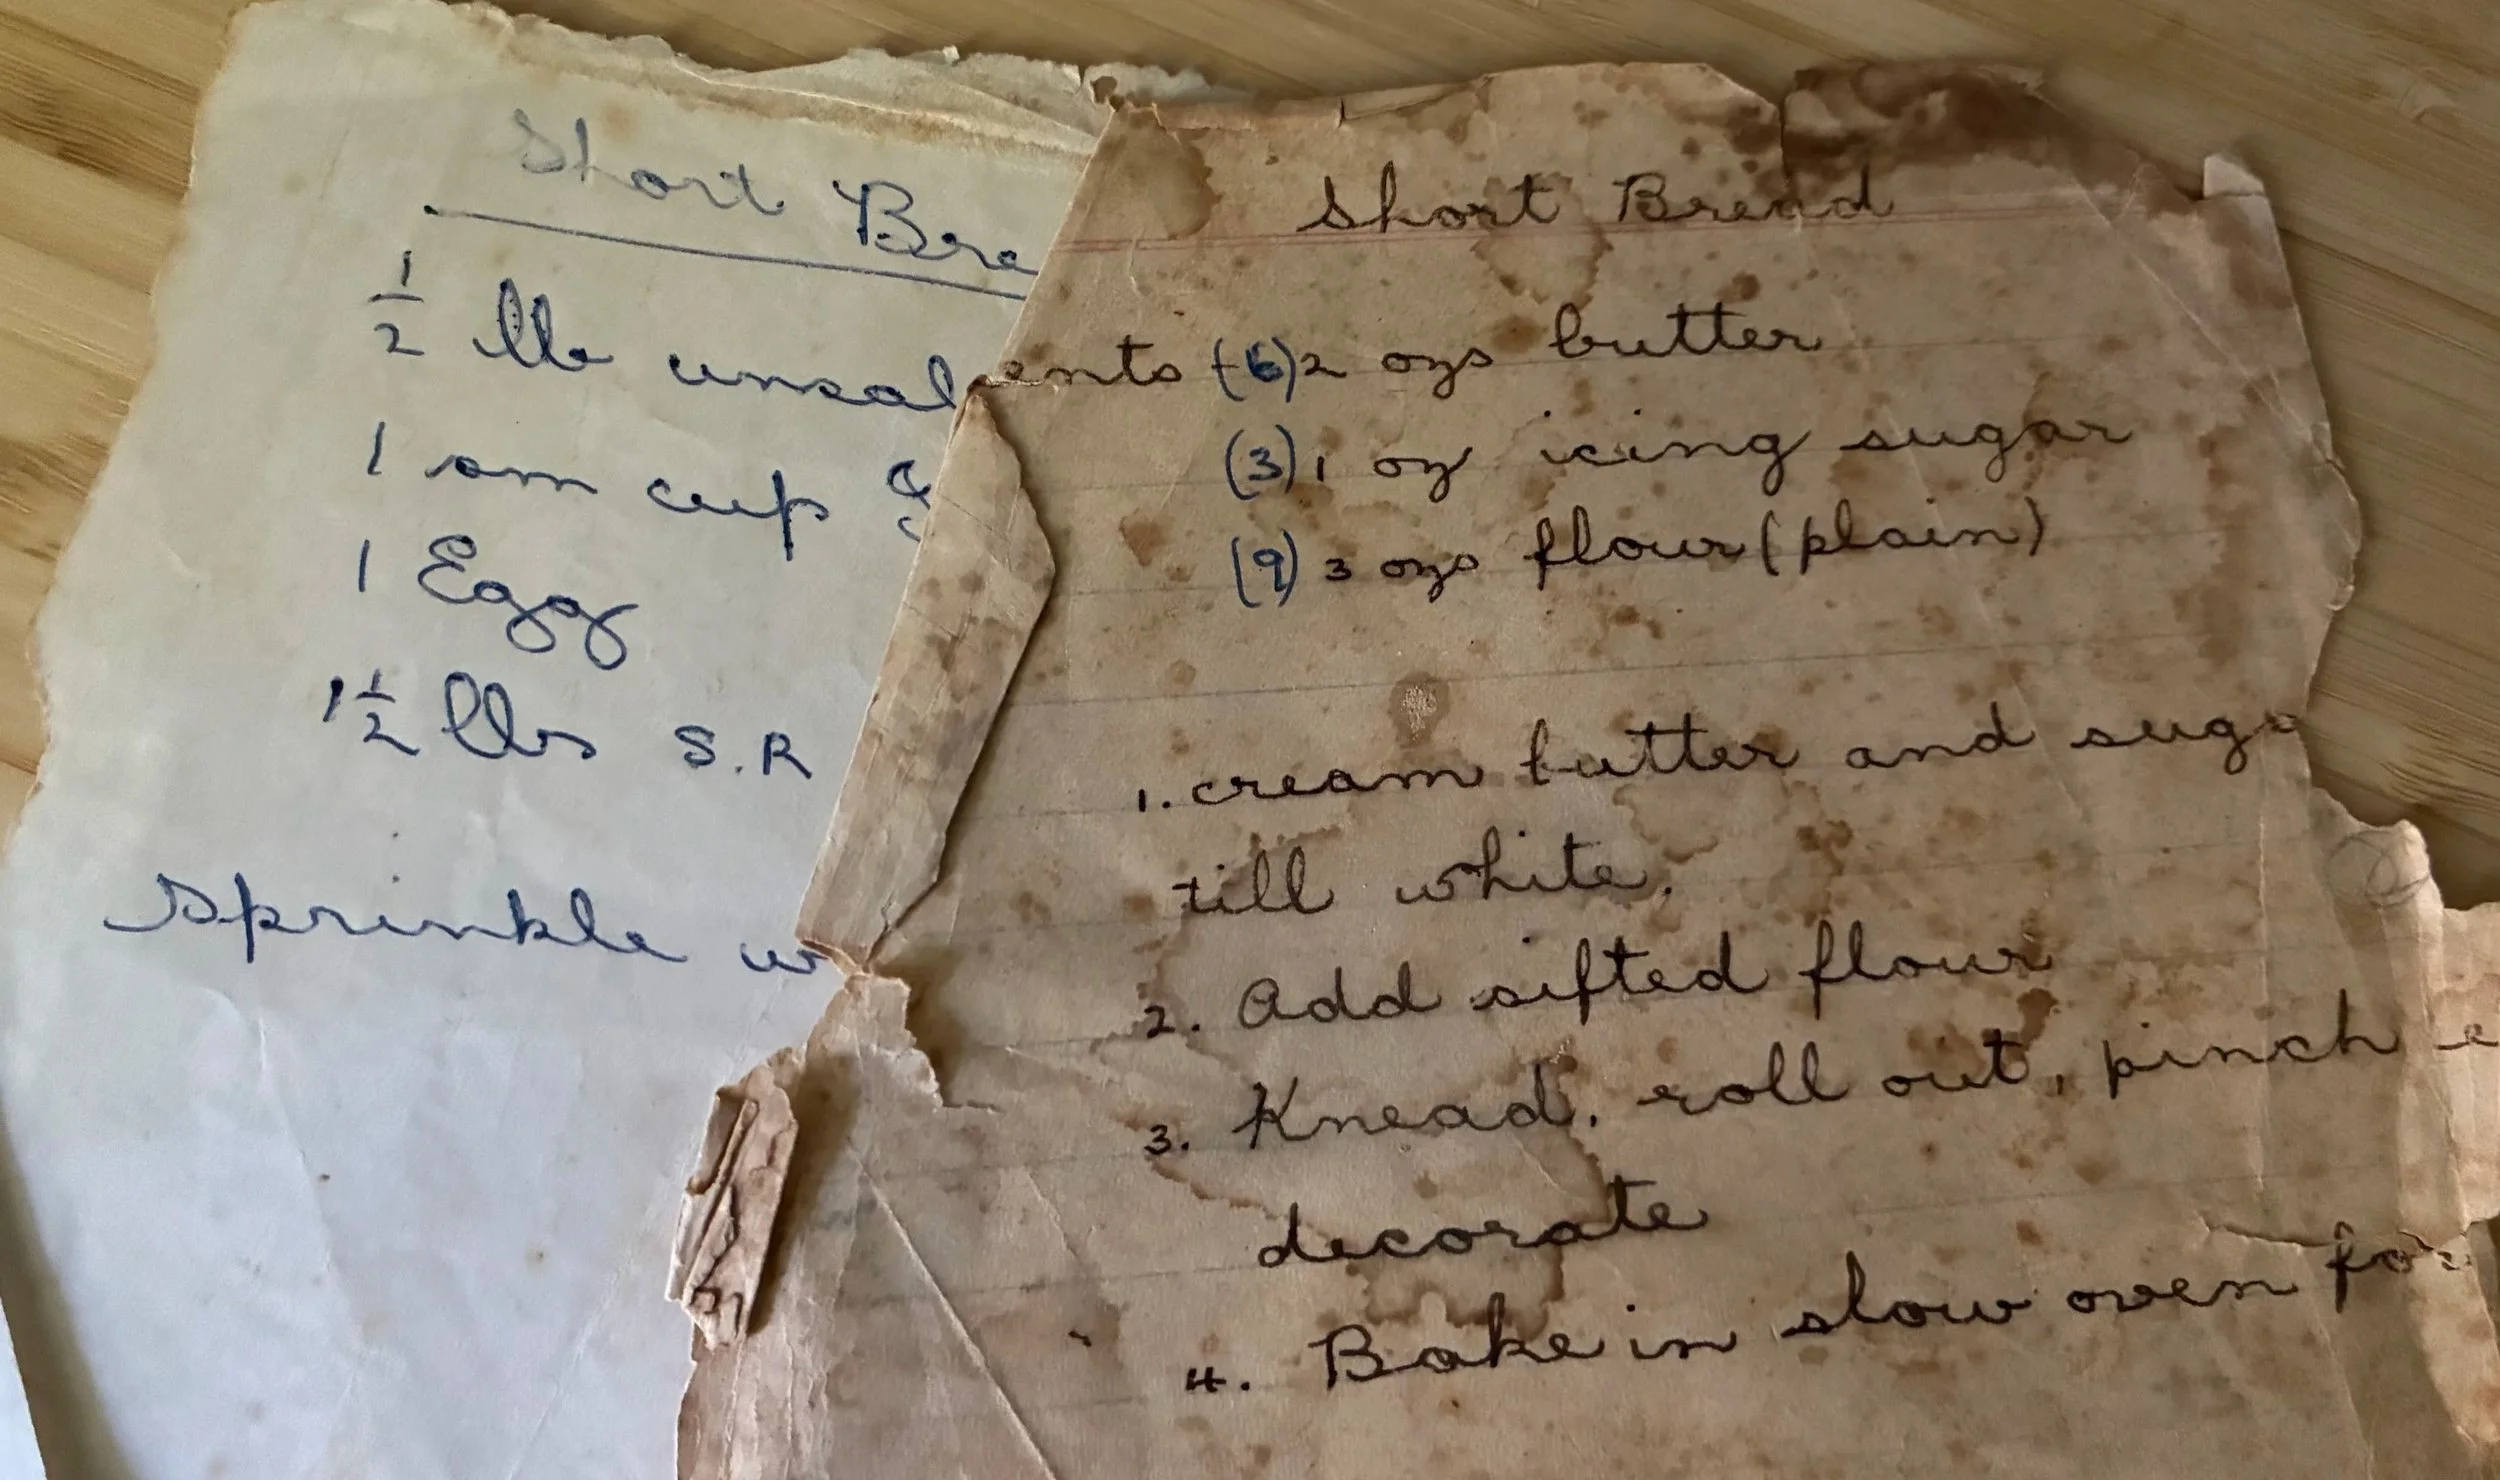 Short Bre
1/2 lb unsal
1 sm cup
1 Egg
1 1/2 lbs S.R
Sprinkle w
Short Bread
ents (6) 2 ozs butter
(3) 1 oz icing sugar
(9) 3 ozs flour (plain)
1. cream butter and suga
till white.
2. Add sifted flour
3. Knead, roll out, pinch e
decorate
4. Bake in slow oven for